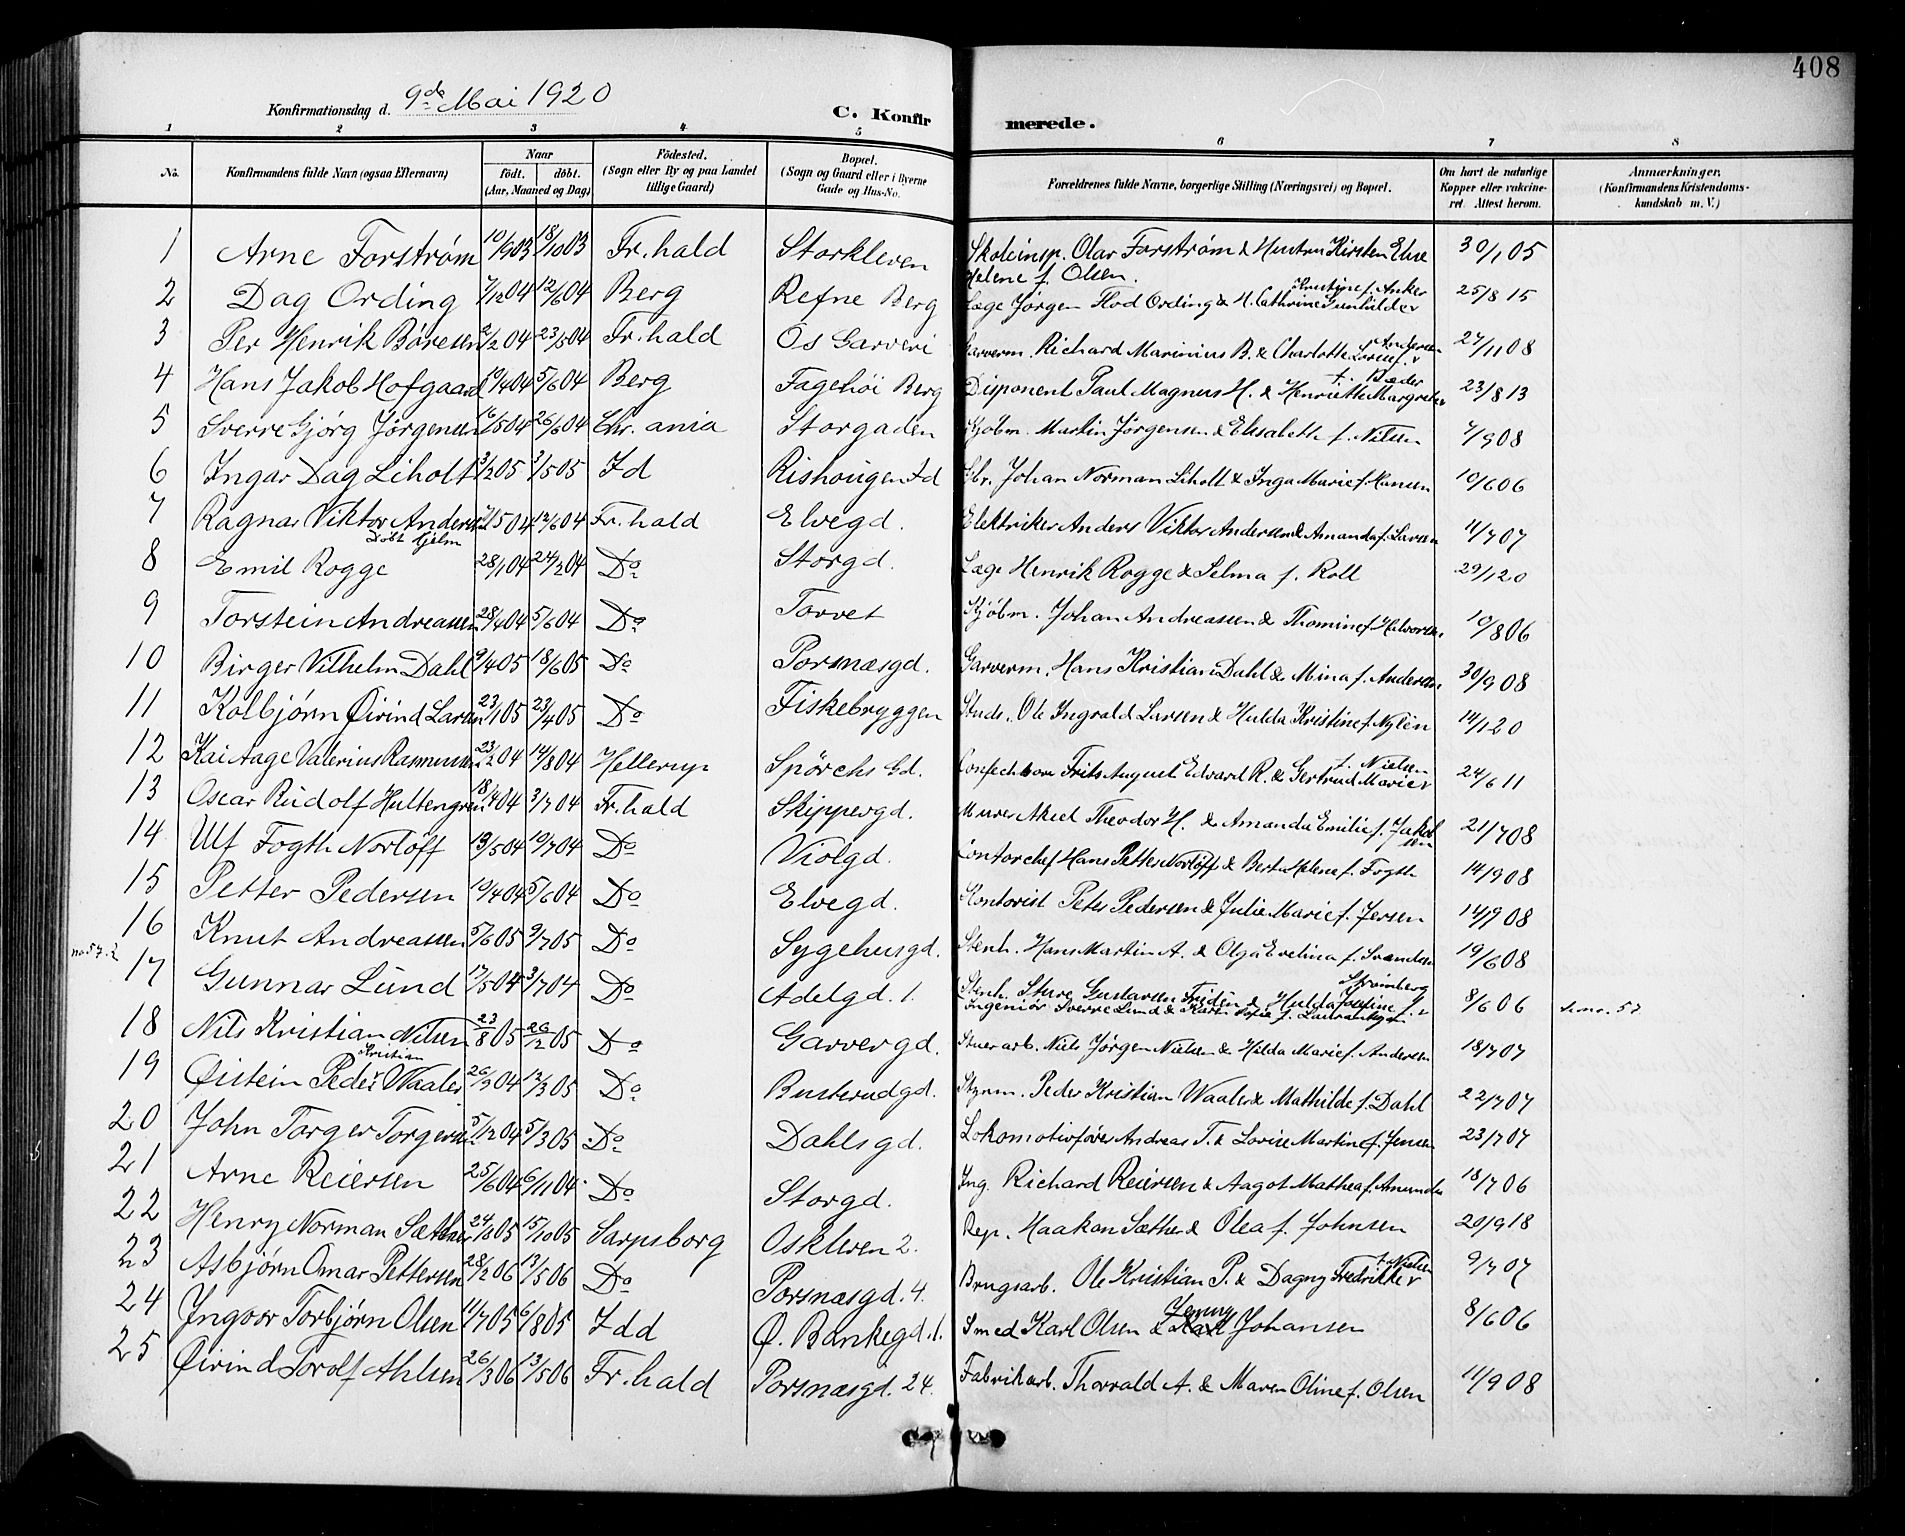 408
Konfirmationsdag d. 9de Mai 1920 C. Konfir merede.
1 2 3 4 5 6 7 8
No. Konfirmandens fulde Navn (ogsaa Efternavn) Naar födt. döbt. (Aar, Maaned og Dag) Födested. (Sogn eller By og paa Landet tillige Gaard) Bopæl. (Sogn og Gaard eller i Byerne Gade og Hus-No. Forældrenes fulde Navne, borgerlige Stilling (Næringsvei) og Bopæl. Om havt de naturlige Kopper eller vakcineret. Attest herom. Anmærkninger. (Konfirmandens Kristendomskundskab m. V.)
1 Arne Forstrøm 10/9 03 18/10 03 Fr.hald Storkleven Skoleinsp. Olav Forstrøm & Hustru Kirsten Else Helene f. Olsen. 30/1 05
2 Dag Ording 7/12 04 12/6 04 Berg Refne Berg Læge Jørgen Flod Ording & H. Cathrine Gunhilde Kristine f. Anker 25/8 15
3 Per Henrik Børesen 2/2 04 23/5 04 Fr.hald Os Garveri Garverm. Richard Marinius B. & Charlotte Lovise f. Andersen 27/11 08
4 Hans Jakob Hofgaard 19/4 04 5/6 04 Berg Fagehöi Berg Disponent Paul Magnus H. & Henriette Margrete f. Bæder 23/8 13
5 Sverre Gjørg Jørgensen 16/5 04 26/6 04 Chr.ania Storgaden Kjøbm. Martin Jørgensen & Elisabeth f. Nilsen 7/9 08
6 Ingar Dag Liholt 3/2 05 3/5 05 Id Rishaugen Id Gbr. Johan Norman Liholt & Inga Marie f. Hansen 10/6 06
7 Ragnar Viktor Andersen 7/5 04 12/6 04 Fr.hald Elvegd. Elektriker Anders Viktor Andersen & Amanda f. Larsen 11/7 07
8 Emil Rogge 28/1 04 24/2 04 Do Storgd. Læge Henrik Rogge & Selma f. Roll 29/1 20
9 Torstein Andreassen 28/4 04 5/6 04 Do Torvet Kjøbm. Johan Andreassen & Thomine f. Halvorsen 10/8 06
10 Birger Vilhelm Dahl 9/4 05 18/6 05 Do Porsnæsgd. Garverm. Hans Kristian Dahl & Mina f. Andersen 30/9 08
11 Kolbjørn Øivind Larsen 23/1 05 23/4 05 Do Fiskebryggen Studs. Ole Ingvald Larsen & Hulda Kristine f. Nylén 14/1 20
12 Kai Aage Valerius Rasmussen 23/2 04 14/8 04 Hellerup Spörchs Gd. Confectione Frits August Edvard R. & Gertrud Marie f. Nielsen 24/6 11
13 Oscar Rudolf Hultengren 18/4 04 3/7 04 Fr.hald Skippergd. Murer Aksel Theodor H. & Amanda Emilie f. Jakobsen 21/7 08
14 Ulf Fogth Norløff 13/5 04 10/7 04 Do Violgd. Contorchef Hans Petter Norløff & Berth Helene f. Fogth 14/9 08
15 Petter Pedersen 19/4 04 5/6 04 Do Elvegd. Kontorist Peter Pedersen & Julie Marie f. Jensen 14/9 08
16 Knut Andreassen 5/6 05 9/7 05 Do Sygehusgd. Stenh. Hans Martin A. & Olga Evelina f. Svendsen 19/6 08
no 57.2 17 Gunnar Lund 17/5 04 3/7 04 Do Adelgd. 1. Stenh. Sture Gustavsen Fridén & Hulda Josefine f. Strømberg
Ingeniør Sverre Lund & Karen Sofie f. 8/6 06 se no. 57
18 Nils Kristian Nilsen 23/8 05 26/2 05 Do Garvergd. Stuerarb. Niels Jørgen Nielsen & Hilda Marie f. Andersen 18/7 07
19 Øistein Peder Kristian Waaler 26/9 04 12/3 05 Do Busterudgd. Styrm. Peder Kristian Waaler & Mathilde f. Dahl 22/7 07
20 John Torger Torgersen 5/12 04 5/3 05 Do Dahlsgd. Lokomotivfører Andreas T. & Lovise Martine f. Jensen 23/7 07
21 Arne Reiersen 25/6 04 6/11 04 Do Storgd. Ing. Richard Reiersen & Aagot Mathea f. Amundsen 18/7 06
22 Henry Norman Sæther 24/1 05 15/10 05 Sarpsborg Oskleven 2. Rep. Haakon Sæther & Olea f. Johnsen 20/9 18
23 Asbjørn Omar Pettersen 28/2 06 13/5 06 Do Porsnæsgd. 4. Brugsarb. Ole Kristian P. & Dagny Fredrikke f. Nielsen 9/7 07
24 Ingvar Torbjørn Olsen 11/7 05 6/8 05 Idd Ø. Bankegd. 1. Smed Karl Olsen & Jenny Johansen 8/6 06
25 Øivind Torolf Ahlsen 26/3 06 13/5 06 Fr.hald Porsnæsgd. 24. Fabrikarb. Thorvald A. & Maren Oline f. Olsen 11/9 08